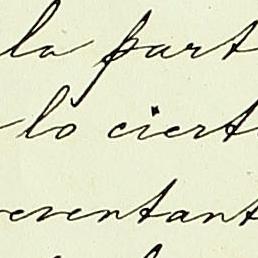 la part
lo ciert
resentant